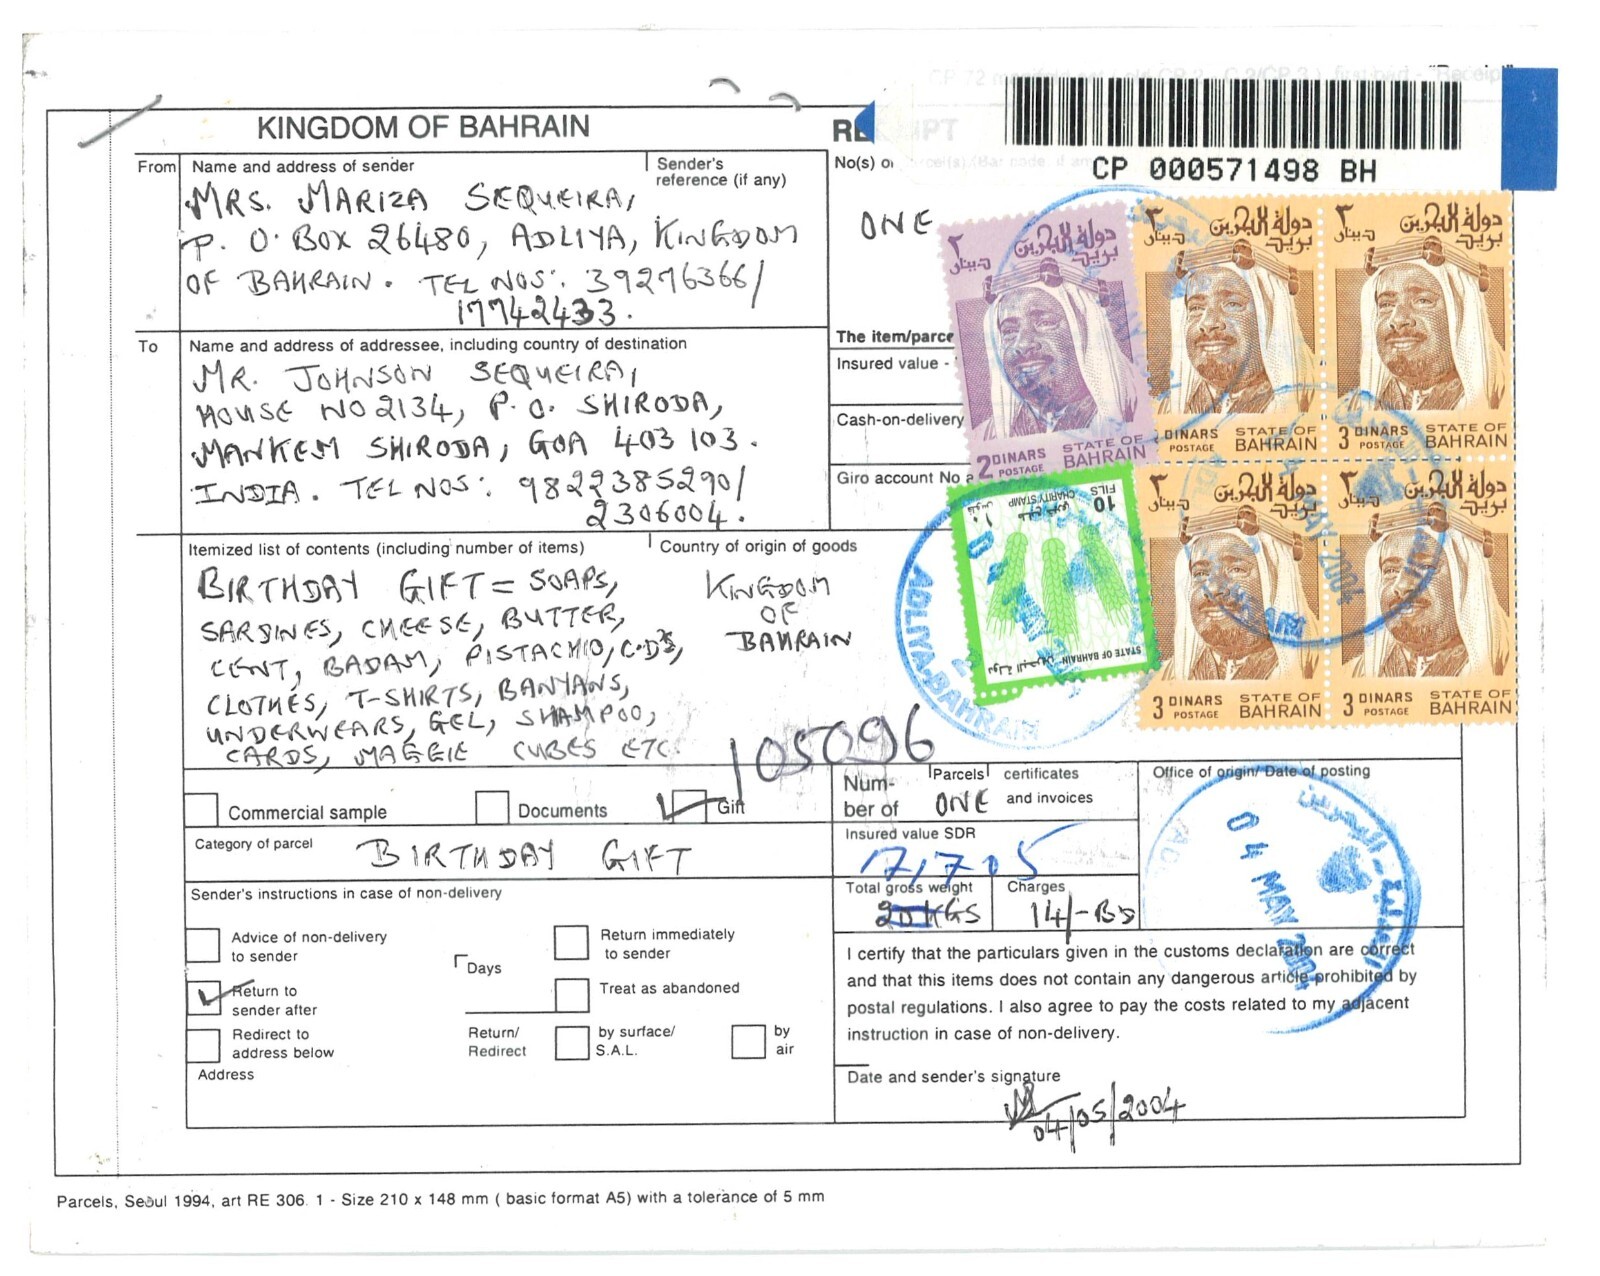 "Receipt"
CP 000571498 BH
KINGDOM OF BAHRAIN
From
Name and address of sender
Sender's
reference (if any)
MRS. MARIZA SEQUEIRA,
P. O. BOX 26480, ADLIYA, KINGDOM
OF BAHRAIN. TEL NOS: 39276366/
17742433.
No(s)
ONE
To
Name and address of addressee, including country of destination
MR. JOHNSON SEQUEIRA,
HOUSE NO 2134, P.O. SHIRODA,
MANKEM SHIRODA, GOA 403 103.
INDIA. TEL NOS: 9822385290/
2306004.
The item/parce
Insured value -
Cash-on-delivery
Giro account No
٢ دينار
دولة البحرين
بريد
2 DINARS
POSTAGE
STATE OF
BAHRAIN
٣ دينار
دولة البحرين
بريد
DINARS
POSTAGE
STATE OF
BAHRAIN
٣ دينار
دولة البحرين
بريد
3 DINARS
POSTAGE
STATE OF
BAHRAIN
٣ دينار
دولة البحرين
بريد
3 DINARS
POSTAGE
STATE OF
BAHRAIN
٣ دينار
دولة البحرين
بريد
3 DINARS
POSTAGE
STATE OF
BAHRAIN
10 FILS
CHARITY STAMP
STATE OF BAHRAIN دولة البحرين
ADLIYA-BAHRAIN
MAY 2004
Itemized list of contents (including number of items)
Country of origin of goods
BIRTHDAY GIFT = SOAPS,
SARDINES, CHEESE, BUTTER,
CENT, BADAM, PISTACHIO, C.D'S,
CLOTHES, T-SHIRTS, BANYANS,
UNDERWEARS, GEL, SHAMPOO,
CARDS, MAGGIE CUBES ETC.
KINGDOM
OF
BAHRAIN
105096
Commercial sample
Documents
Gift
Num-
ber of
Parcels
ONE
certificates
and invoices
Office of origin/ Date of posting
04 MAY 2004
البحرين
Category of parcel
BIRTHDAY GIFT
Insured value SDR
Total gross weight
20 KGS
Charges
14/- BD
Sender's instructions in case of non-delivery
Advice of non-delivery
to sender
Days
Return immediately
to sender
Return to
sender after
Treat as abandoned
Redirect to
address below
Return/
Redirect
by surface/
S.A.L.
by
air
Address
I certify that the particulars given in the customs declaration are correct
and that this items does not contain any dangerous article prohibited by
postal regulations. I also agree to pay the costs related to my adjacent
instruction in case of non-delivery.
Date and sender's signature
04/05/2004
Parcels, Seoul 1994, art RE 306. 1 - Size 210 x 148 mm ( basic format A5) with a tolerance of 5 mm